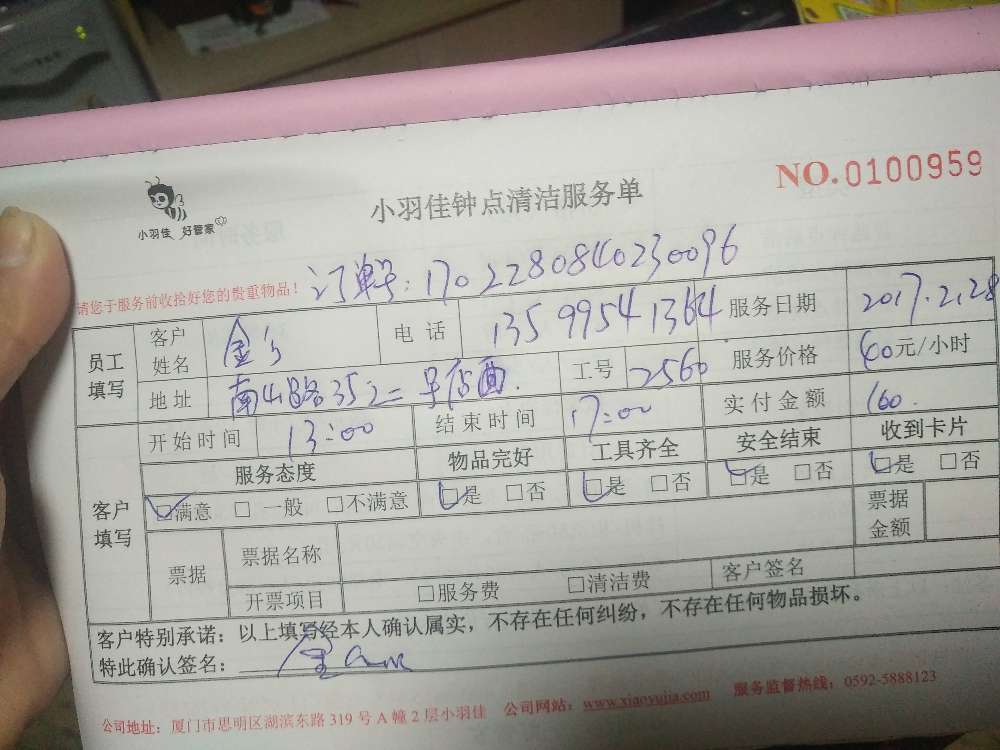 NO.0100959
小羽佳 好管家
小羽佳钟点清洁服务单
请您于服务前收拾好您的贵重物品!
订单:1702280840230096
员工填写 客户姓名 金 电话 13599541364 服务日期 2017.2.28
地址 南山路35 店面. 工号 2560 服务价格 40元/小时
客户填写 开始时间 13:00 结束时间 17:00 实付金额 160.
服务态度 物品完好 工具齐全 安全结束 收到卡片
☑满意 □一般 □不满意 ☑是 □否 ☑是 □否 ☑是 □否 ☑是 □否
票据 票据名称 票据金额
开票项目 □服务费 □清洁费 客户签名
客户特别承诺:以上填写经本人确认属实,不存在任何纠纷,不存在任何物品损坏。
特此确认签名:
公司地址:厦门市思明区湖滨东路319号A幢2层小羽佳 公司网站:www.xiaoyujia.com 服务监督热线:0592-5888123